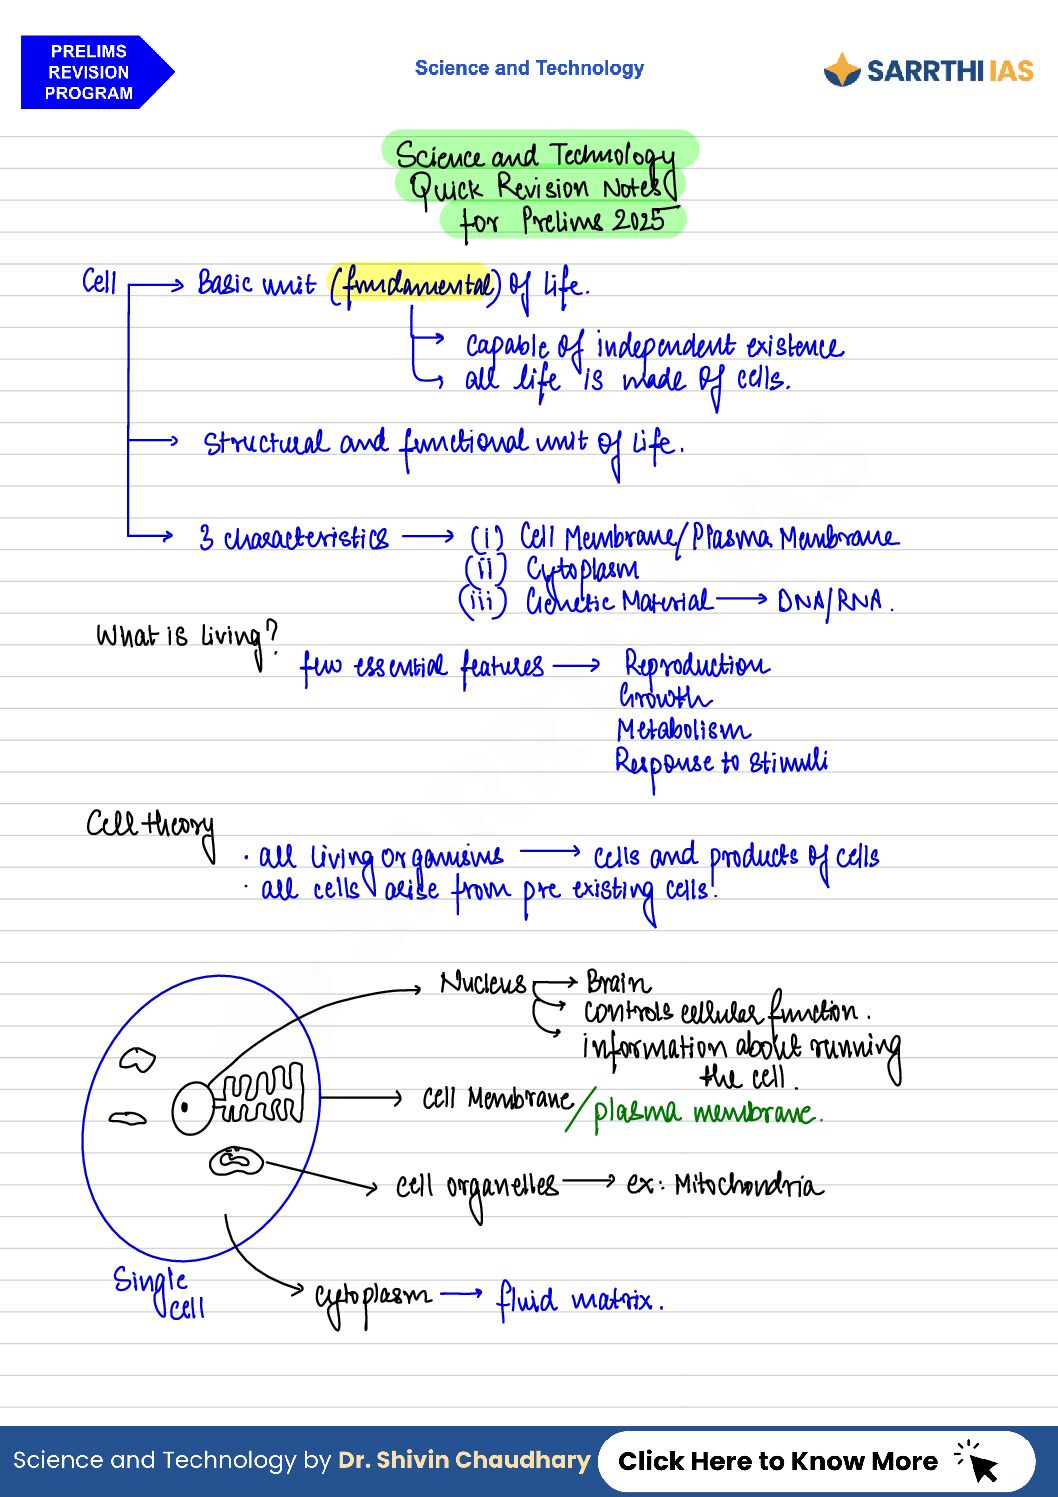 PRELIMS
REVISION
PROGRAM
Science and Technology
SARRTHI IAS
Science and Technology
Quick Revision Notes
for Prelims 2025
Cell → Basic unit (fundamental) of life.
→ capable of independent existence
→ all life is made of cells.
→ structural and functional unit of life.
→ 3 characteristics → (i) Cell Membrane/Plasma Membrane
(ii) Cytoplasm
(iii) Genetic Material → DNA/RNA.
What is living?
few essential features → Reproduction
Growth
Metabolism
Response to stimuli
Cell theory
· all living organisms → cells and products of cells
· all cells arise from pre existing cells.
Nucleus → Brain
→ controls cellular function.
→ information about running
the cell.
cell Membrane/plasma membrane.
cell organelles → ex: Mitochondria
Single
cell
cytoplasm → fluid matrix.
Science and Technology by Dr. Shivin Chaudhary
Click Here to Know More